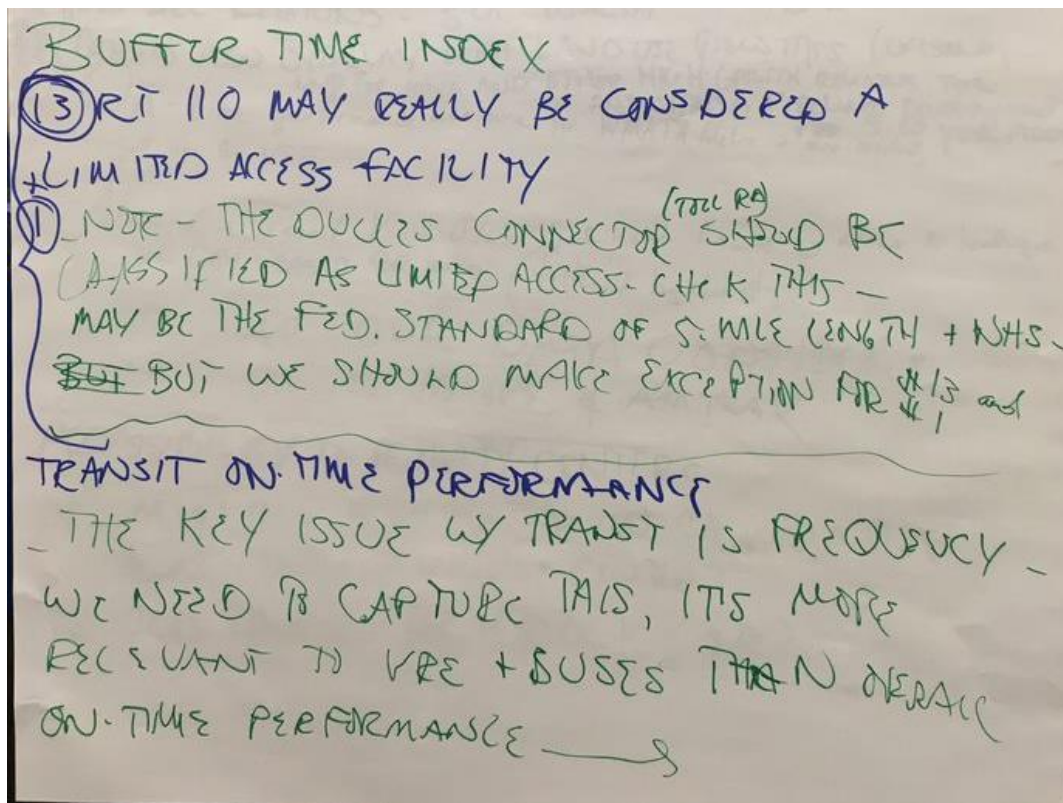 BUFFER TIME INDEX
(13) RT 110 MAY REALLY BE CONSIDERED A
+ LIMITED ACCESS FACILITY
(1) - NOTE - THE DULLES CONNECTOR (TOLL RD) SHOULD BE
CLASSIFIED AS LIMITED ACCESS. CHCK THIS -
MAY BE THE FED. STANDARD OF 5. MILE LENGTH + NHS -
BUT BUT WE SHOULD MAKE EXCEPTION FOR #13 and
#1
TRANSIT ON-TIME PERFORMANCE
- THE KEY ISSUE W/ TRANSIT IS FREQUENCY -
WE NEED TO CAPTURE THIS, ITS MORE
RELEVANT TO VRE + BUSES THAN OVERALL
ON-TIME PERFORMANCE